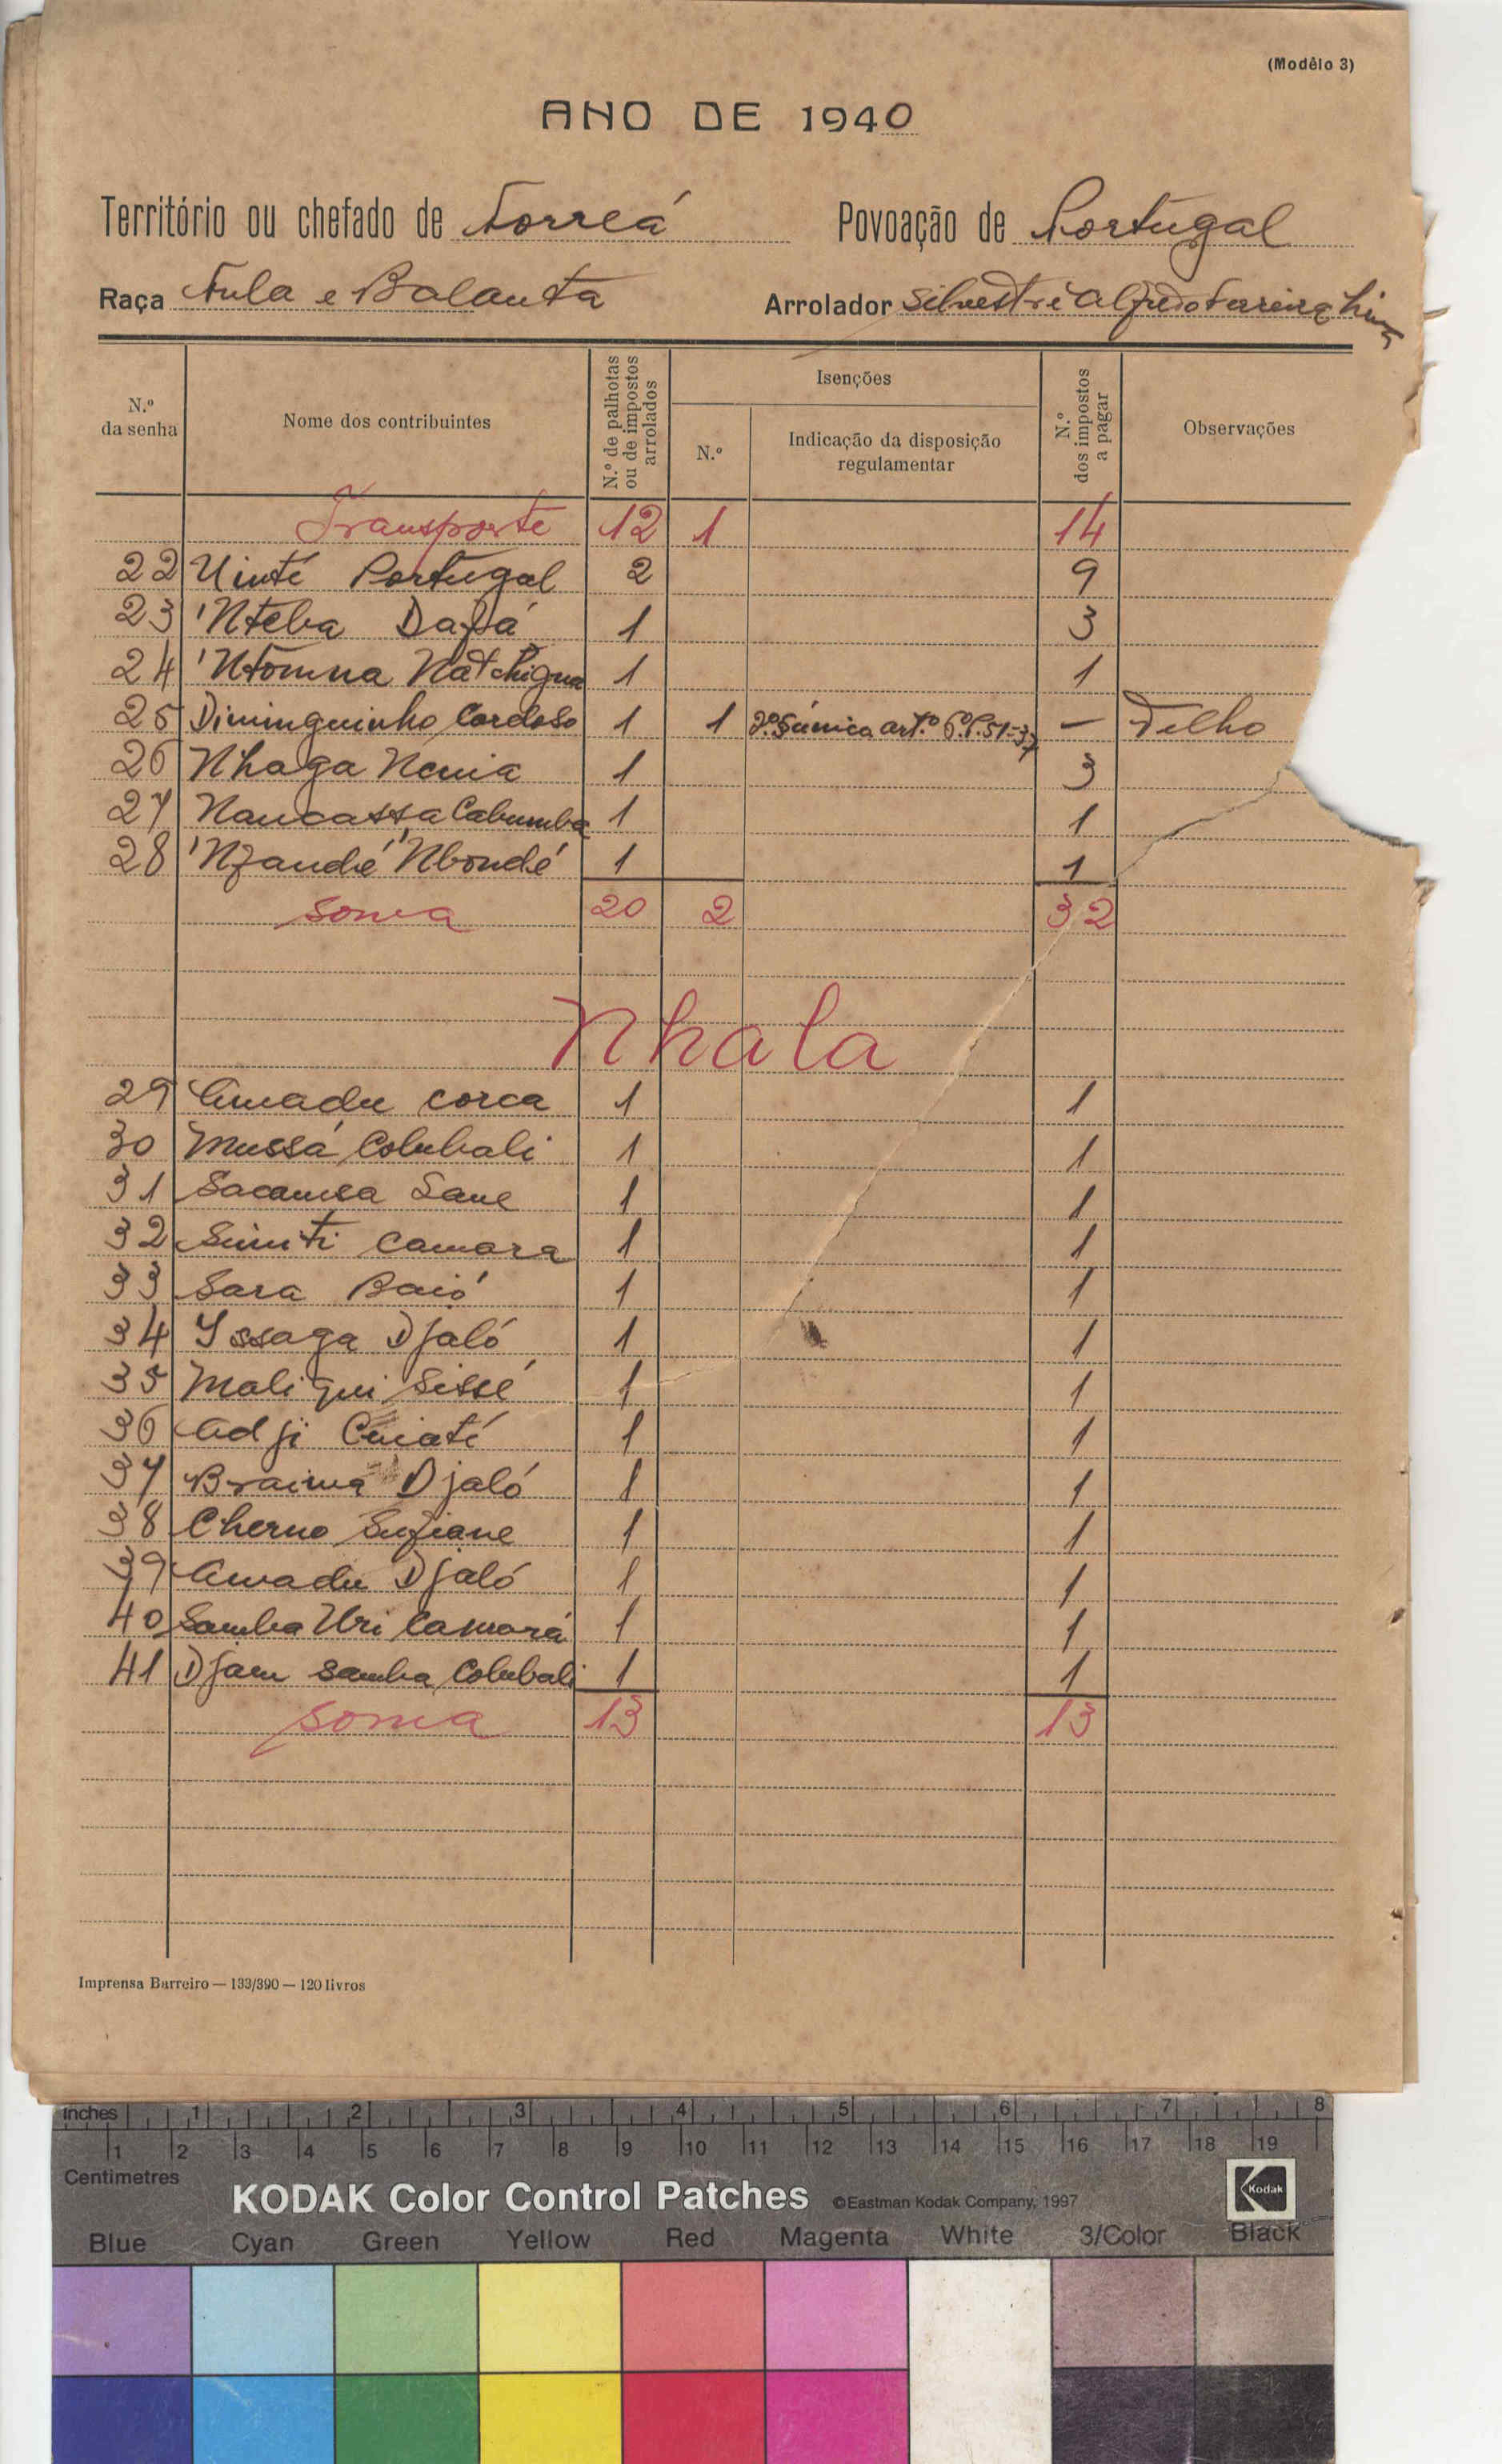 (Modêlo 3)
ANO DE 1940
Território ou chefado de Forreá Povoação de Portugal
Raça Fula e Balanta Arrolador Silvestre Alfredo Ferreira
N.º da senha
Nome dos contribuintes
N.º de palhotas ou de impostos arrolados
Isenções
N.º
Indicação da disposição regulamentar
N.º dos impostos a pagar
Observações
Transporte 12 1 14
22 Uinté Portugal 2 9
23 'Nteba Dafá 1 3
24 'Ntomna Natchigna 1 1
25 Diminguinho Cardoso 1 1 art.º — Velho
26 Nhaga Nenia 1 3
27 Naucassa Cabumba 1 1
28 'Nzandé 'Nbondé 1 1
Soma 20 2 32
Nhala
29 Amadu Corca 1 1
30 Mussá Colubali 1 1
31 Sacamea Sane 1 1
32 Simiti Camara 1 1
33 Sara Baió 1 1
34 Issaga Djaló 1 1
35 Maliqui Sissé 1 1
36 Adji Cuiaté 1 1
37 Braima Djaló 1 1
38 Cherno Sufiane 1 1
39 Amadu Djaló 1 1
40 Samba Uri Camará 1 1
41 Djam Samba Colubali 1 1
Soma 13 13
Imprensa Barreiro — 133/390 — 120 livros
inches 1 2 3 4 5 6 7 8
1 2 3 4 5 6 7 8 9 10 11 12 13 14 15 16 17 18 19
Centimetres
KODAK Color Control Patches ©Eastman Kodak Company, 1997 Kodak
Blue Cyan Green Yellow Red Magenta White 3/Color Black